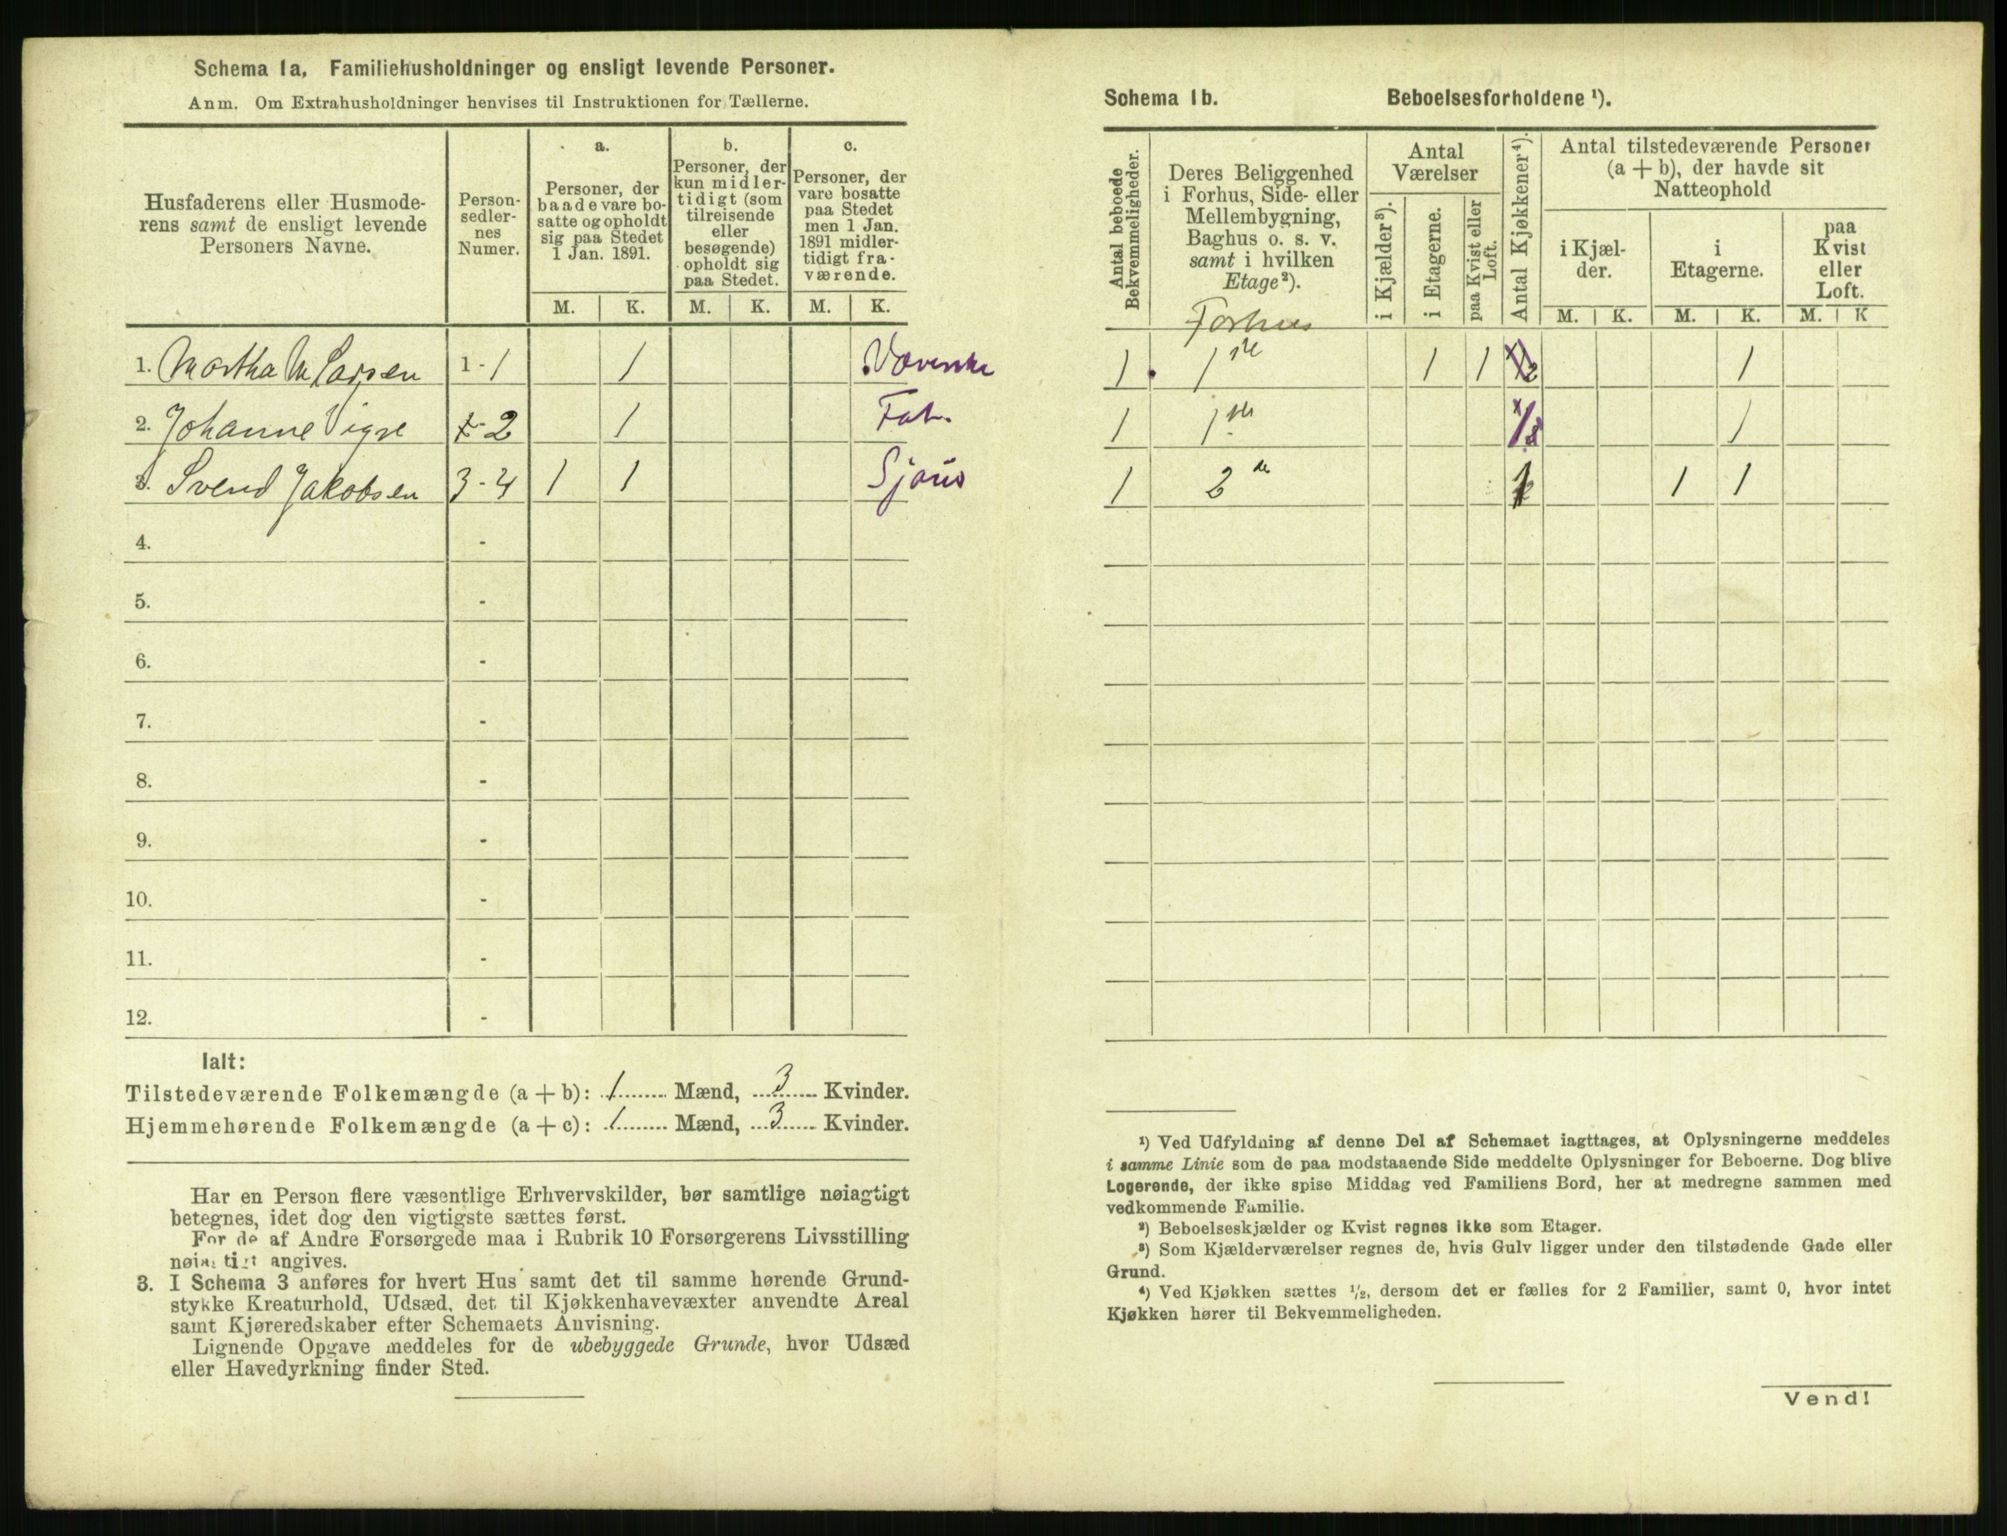 Schema 1a. Familiehusholdninger og ensligt levende Personer.
Anm. Om Extrahusholdninger henvises til Instruktionen for Tællerne.
Husfaderens eller Husmode-
rens samt de ensligt levende
Personers Navne.
Person-
sedler-
nes
Numer.
a.
Personer, der
baade vare bo-
satte og opholdt
sig paa Stedet
1 Jan. 1891.
b.
Personer, der
kun midler-
tidigt (som
tilreisende
eller
besøgende)
opholdt sig
paa Stedet.
c.
Personer, der
vare bosatte
paa Stedet
men 1 Jan.
1891 midler-
tidigt fra-
værende.
M. K. M. K. M. K.
1. Martha M Larsen 1 - 1 1
2. Johanne Vigre - 2 1 Fat.
3. Svend Jakobsen 3 - 4 1 1 Sjaus
4. -
5. -
6. -
7. -
8. -
9. -
10. -
11. -
12. -
Ialt:
Tilstedeværende Folkemængde (a + b): 1 Mænd, 3 Kvinder.
Hjemmehørende Folkemængde (a + c): 1 Mænd, 3 Kvinder.
Har en Person flere væsentlige Erhvervskilder, bør samtlige nøiagtigt
betegnes, idet dog den vigtigste sættes først.
For de af Andre Forsørgede maa i Rubrik 10 Forsørgerens Livsstilling
angives.
3. I Schema 3 anføres for hvert Hus samt det til samme hørende Grund-
stykke Kreaturhold, Udsæd, det til Kjøkkenhavevæxter anvendte Areal
samt Kjøreredskaber efter Schemaets Anvisning.
Lignende Opgave meddeles for de ubebyggede Grunde, hvor Udsæd
eller Havedyrkning finder Sted.
Schema 1b. Beboelsesforholdene ¹).
Antal beboede
Bekvemmeligheder.
Deres Beliggenhed
i Forhus, Side- eller
Mellembygning,
Baghus o. s. v.
samt i hvilken
Etage²).
Antal
Værelser
i Kjælder³).
i Etagerne.
paa Kvist eller
Loft.
Antal Kjøkkener⁴).
Antal tilstedeværende Personer
(a + b), der havde sit
Natteophold
i Kjæl-
der.
i
Etagerne.
paa
Kvist
eller
Loft.
M. K. M. K. M. K
Forhus
1 1ste 1 1 1
1 1ste 1
1 2de 1 1 1
¹) Ved Udfyldning af denne Del af Schemaet iagttages, at Oplysningerne meddeles
i samme Linie som de paa modstaaende Side meddelte Oplysninger for Beboerne. Dog blive
Logerende, der ikke spise Middag ved Familiens Bord, her at medregne sammen med
vedkommende Familie.
²) Beboelseskjælder og Kvist regnes ikke som Etager.
³) Som Kjælderværelser regnes de, hvis Gulv ligger under den tilstødende Gade eller
Grund.
⁴) Ved Kjøkken sættes ½, dersom det er fælles for 2 Familier, samt 0, hvor intet
Kjøkken hører til Bekvemmeligheden.
Vend!